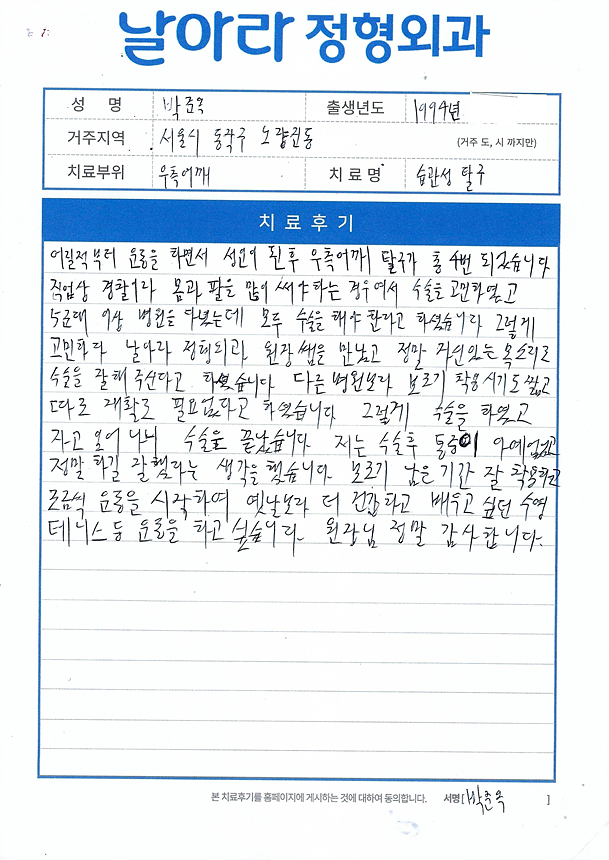 날아라 정형외과
성 명 박준옥 출생년도 1994년
거주지역 서울시 동작구 노량진동 (거주 도, 시 까지만)
치료부위 우측어깨 치 료 명 습관성 탈구
치 료 후 기
어릴적부터 운동을 하면서 성인이 된후 우측어깨 탈구가 총 4번 되었습니다
직업상 경찰이라 몸과 팔을 많이 써야 하는 경우여서 수술을 고민하였고
5군데 이상 병원을 다녔는데 모두 수술을 해야 한다고 하셨습니다 그렇게
고민하다 날아라 정형외과 원장쌤을 만났고 정말 자신있는 목소리로
수술을 잘해 주신다고 하셨습니다 다른병원보다 보조기 착용시기도 짧고
따로 재활도 필요없다고 하였습니다 그렇게 수술을 하였고
자고 일어나니 수술은 끝났습니다 저는 수술후 통증이 아예없었고
정말 하길 잘했다는 생각을 했습니다 보조기 남은 기간 잘 착용하고
조금씩 운동을 시작하여 옛날보다 더 건강하고 배우고 싶던 수영
테니스등 운동을 하고싶습니다. 원장님 정말 감사합니다.
본 치료후기를 홈페이지에 게시하는 것에 대하여 동의합니다. 서명[박준옥 ]